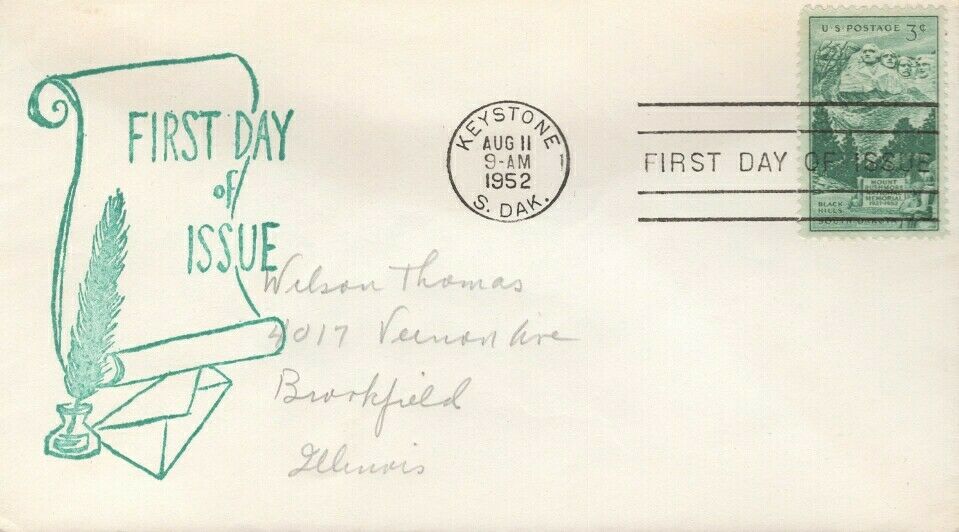 FIRST DAY
of
ISSUE
KEYSTONE
AUG 11
9-AM
1952
S. DAK.
FIRST DAY OF ISSUE
U.S. POSTAGE 3¢
MOUNT
RUSHMORE
MEMORIAL
1927-1952
BLACK
HILLS
SOUTH DAKOTA
Wilson Thomas
4017 Vernon Ave
Brookfield
Illinois